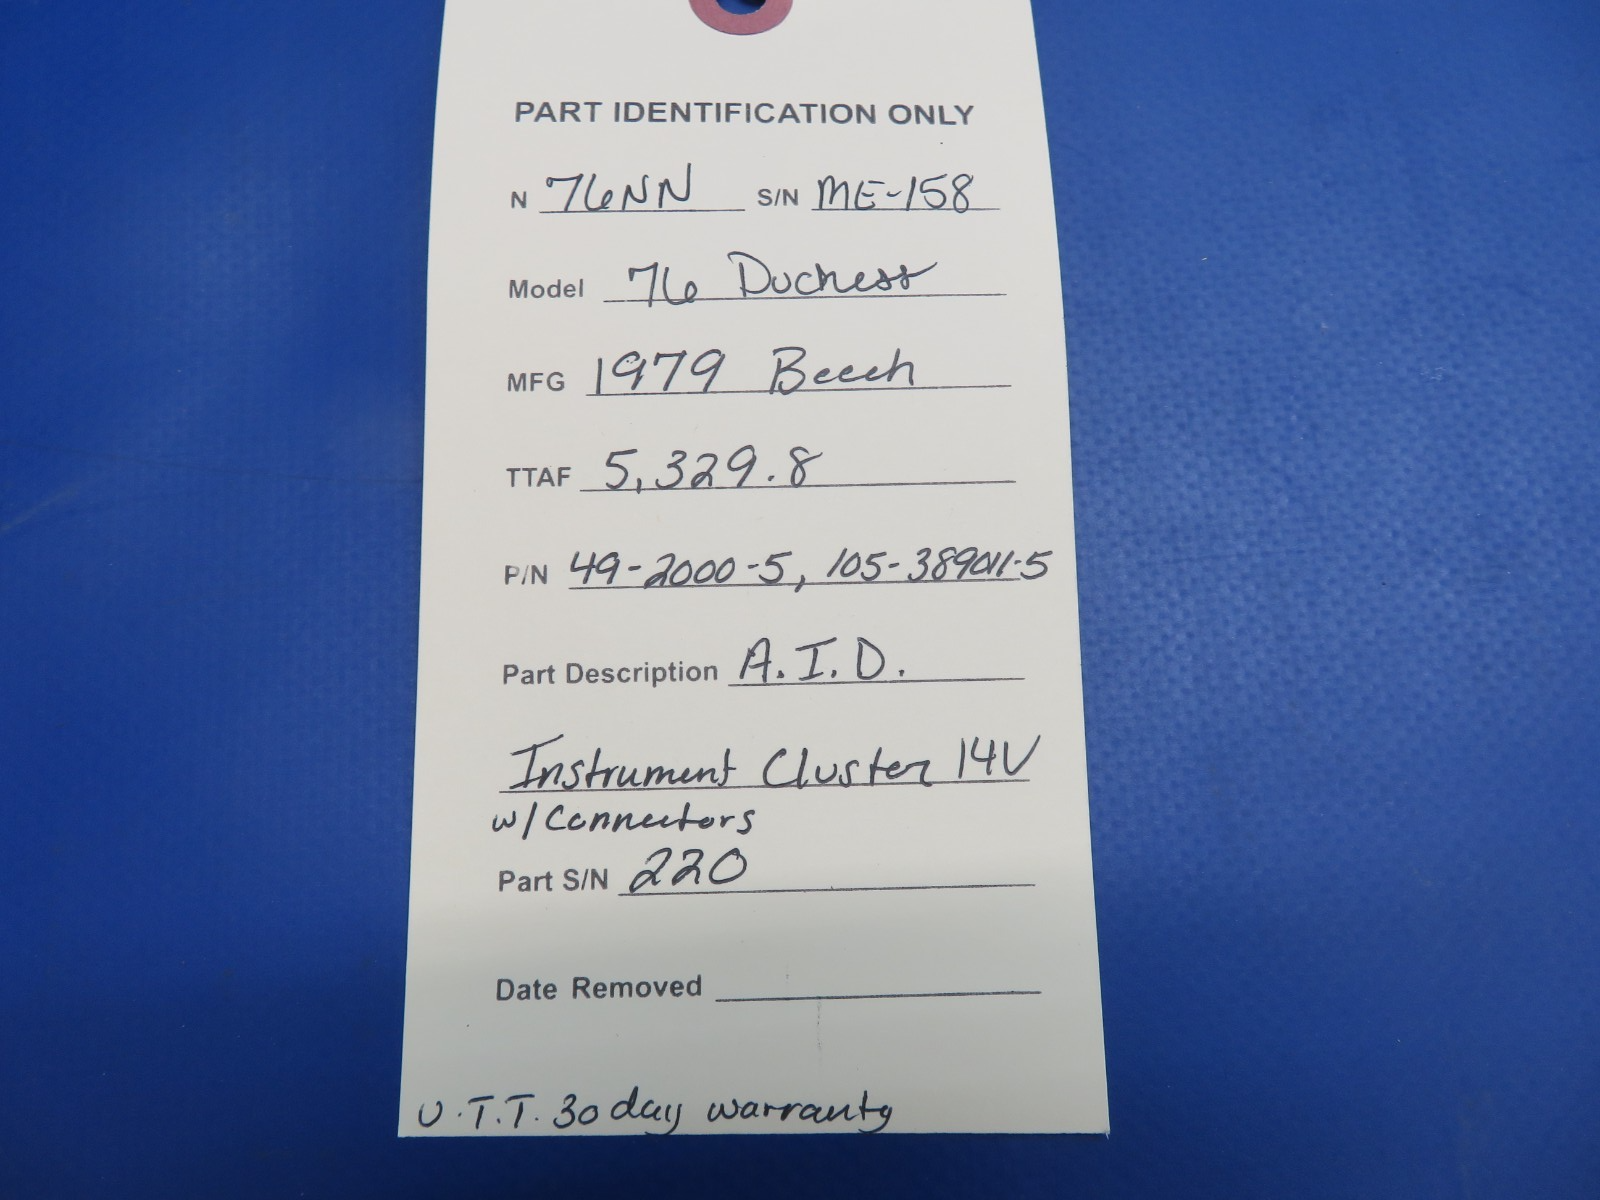 PART IDENTIFICATION ONLY
N 76NN S/N ME-158
Model 76 Duchess
MFG 1979 Beech
TTAF 5,329.8
P/N 49-2000-5, 105-389011-5
Part Description A.I.D.
Instrument Cluster 14V
w/ Connectors
Part S/N 220
Date Removed
U.T.T. 30 day warranty